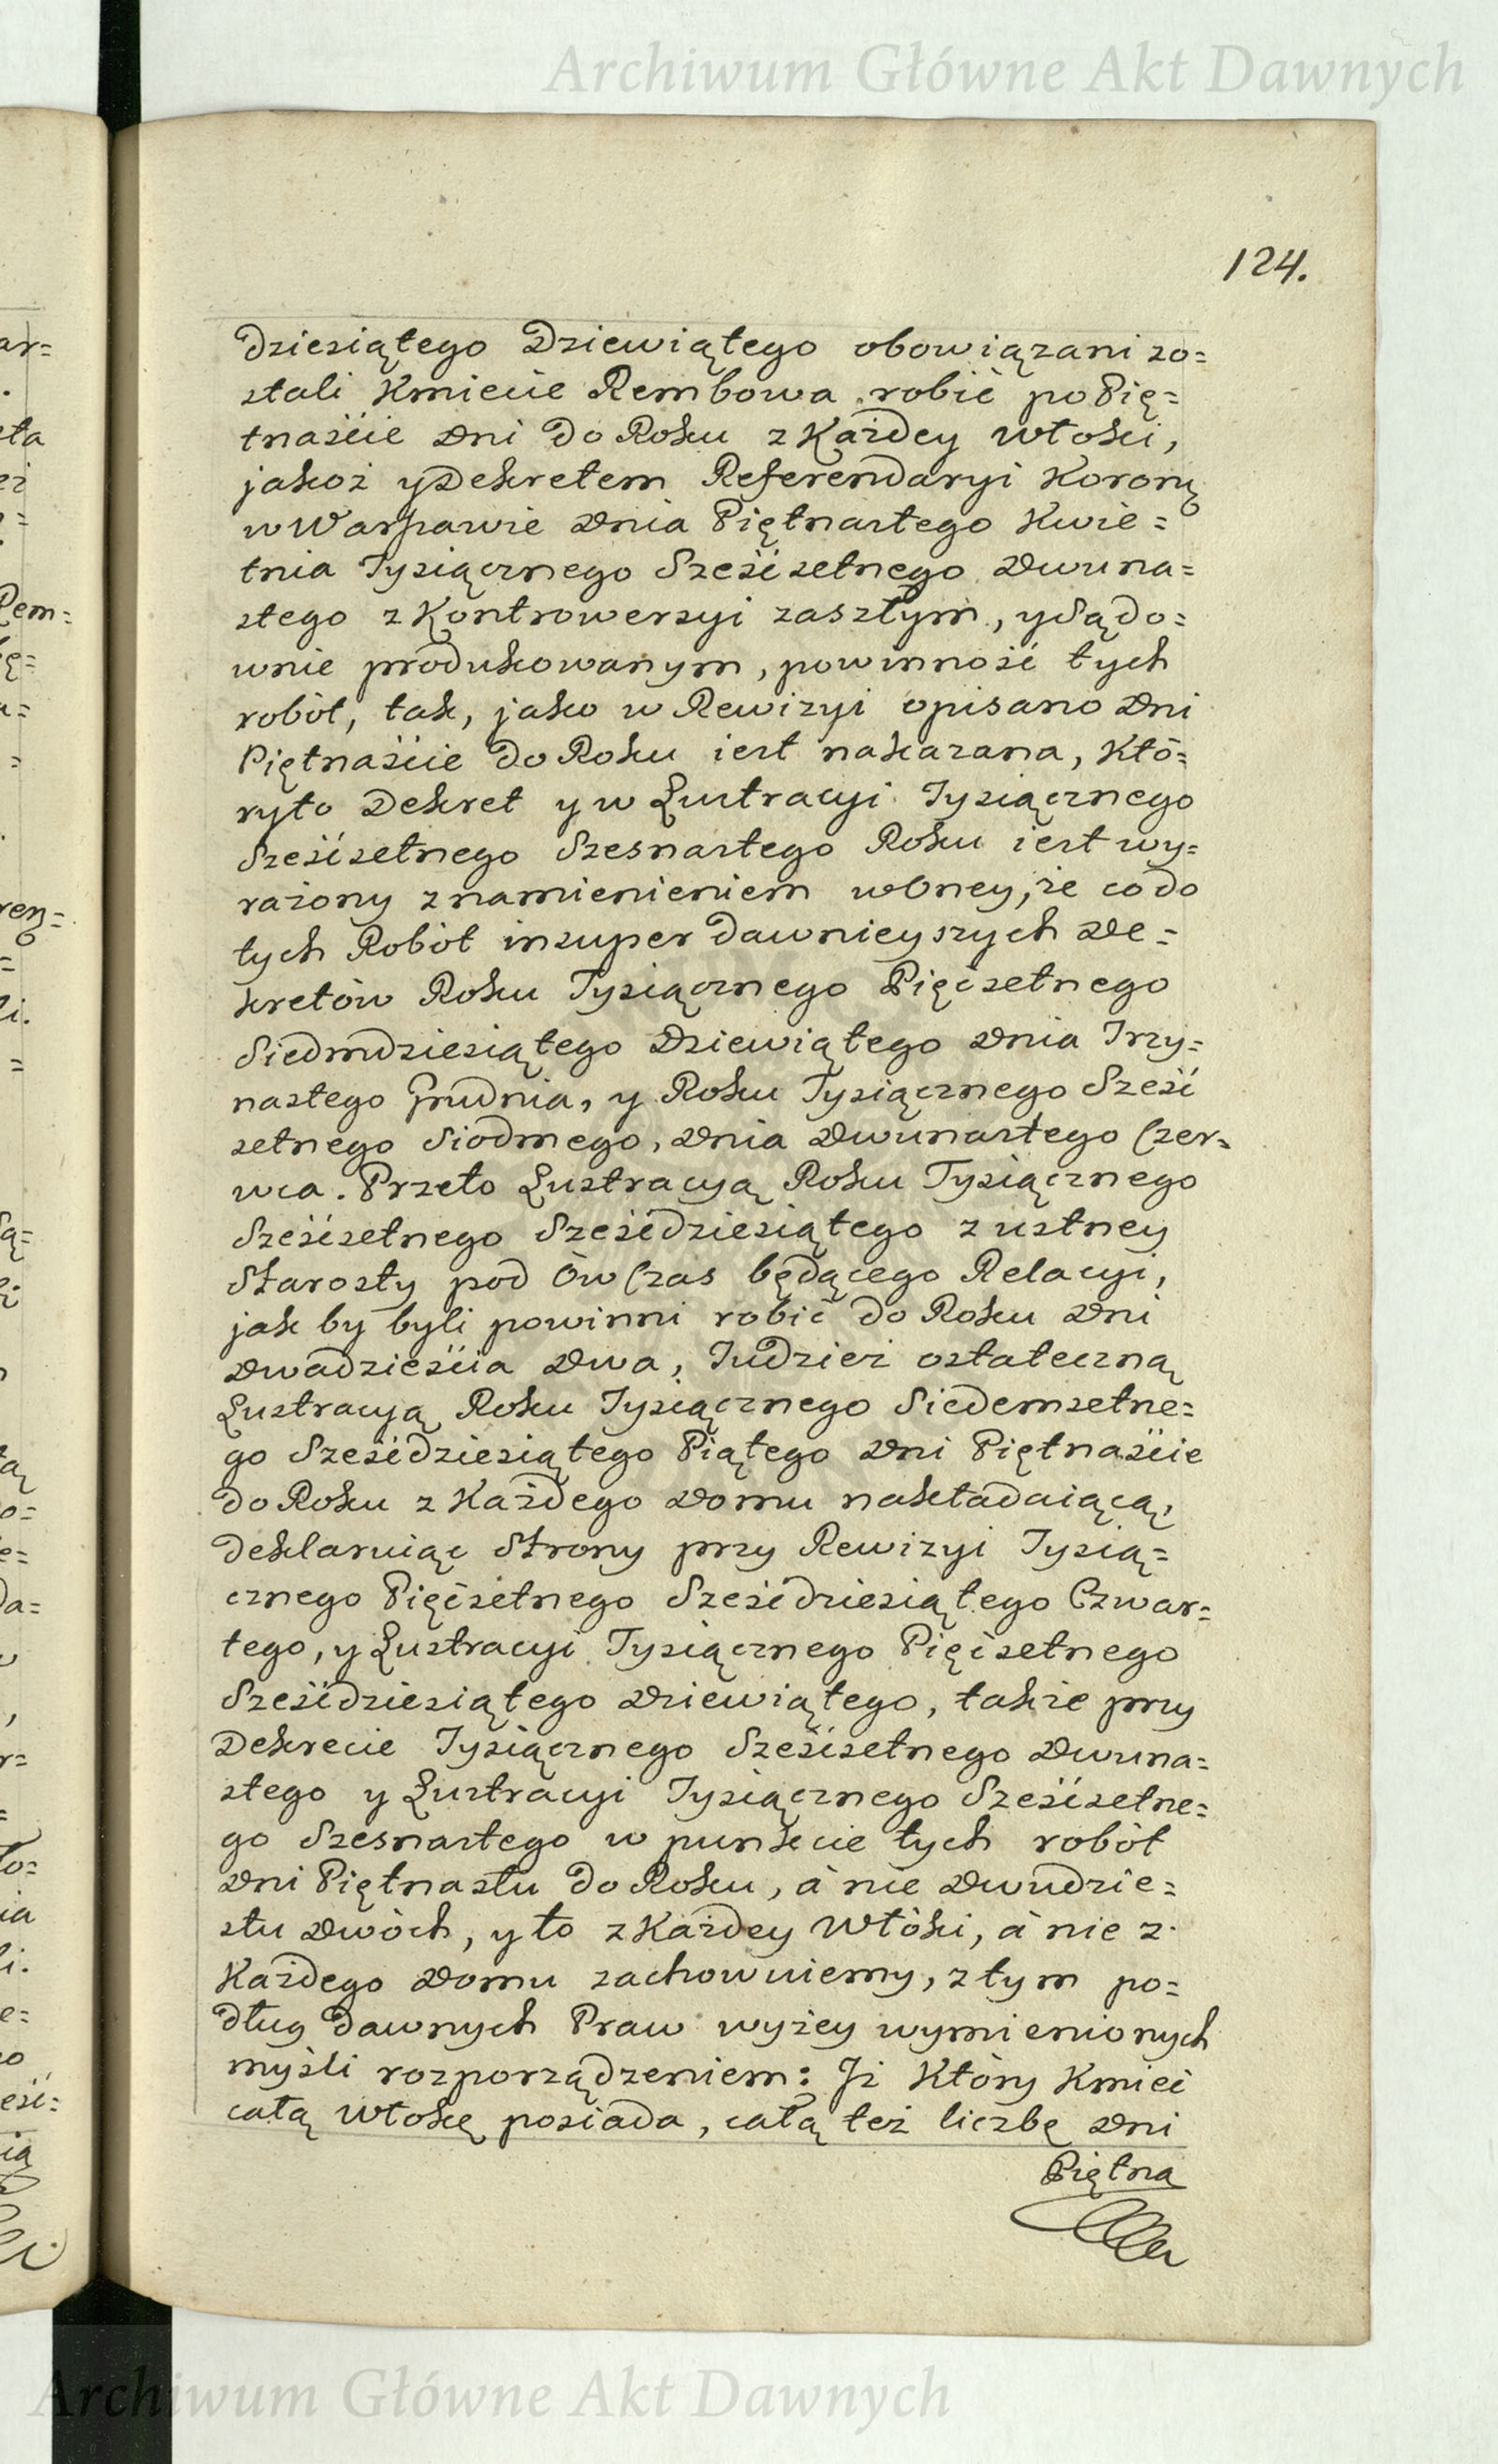 Archiwum Główne Akt Dawnych
124.
Dziesiątego Dziewiątego obowiązani zo=
stali Kmiecie Rembowa robić po Pię=
tnaście Dni do Roku z Każdey Włoki,
jakoż y Dekretem Referendaryi Koronę
w Warszawie Dnia Piętnastego Kwie=
tnia Tysiącznego Sześćsetnego Dwuna=
stego z Kontrowersyi zaszłym, y Sądo=
wnie produkowanym, powinność tych
robót, tak, jako w Rewizyi opisano Dni
Piętnaście do Roku iest nakazana, Któ=
ryto Dekret y w Lustracyi Tysiącznego
Sześćsetnego Szesnastego Roku iest wy=
rażony z namienieniem w Oney, że co do
tych Robót insuper dawnieyszych De=
kretów Roku Tysiącznego Pięćsetnego
Siedmdziesiątego Dziewiątego Dnia Trzy=
nastego Grudnia, y Roku Tysiącznego Sześć
setnego Siodmego, Dnia Dwunastego Czer=
wca. Przeto Lustracyą Roku Tysiącznego
Sześćsetnego Sześćdziesiątego z ustney
Starosty pod Ów Czas będącego Relacyi,
jak by byli powinni robić do Roku Dni
Dwadzieścia Dwa, Tudzież ostateczną
Lustracyą Roku Tysiącznego Siedemsetne=
go Sześćdziesiątego Piątego Dni Piętnaście
do Roku z Każdego Domu nakładaiącą,
deklaruiąc Strony przy Rewizyi Tysią=
cznego Pięćsetnego Sześćdziesiątego Czwar=
tego, y Lustracyi Tysiącznego Pięćsetnego
Sześćdziesiątego Dziewiątego, także przy
Dekrecie Tysiącznego Sześćsetnego Dwuna=
stego y Lustracyi Tysiącznego Sześćsetne=
go Szesnastego w punkcie tych robót
Dni Piętnastu do Roku, à nie Dwudzie=
stu Dwóch, y to z Każdey Włóki, à nie z
Każdego Domu zachowuiemy, z tym po=
dług dawnych Praw wyżey wymienionych
myśli rozporządzeniem: Iż Który Kmieć
całą Włokę posiada, całą też liczbę Dni
Piętna
Archiwum Główne Akt Dawnych